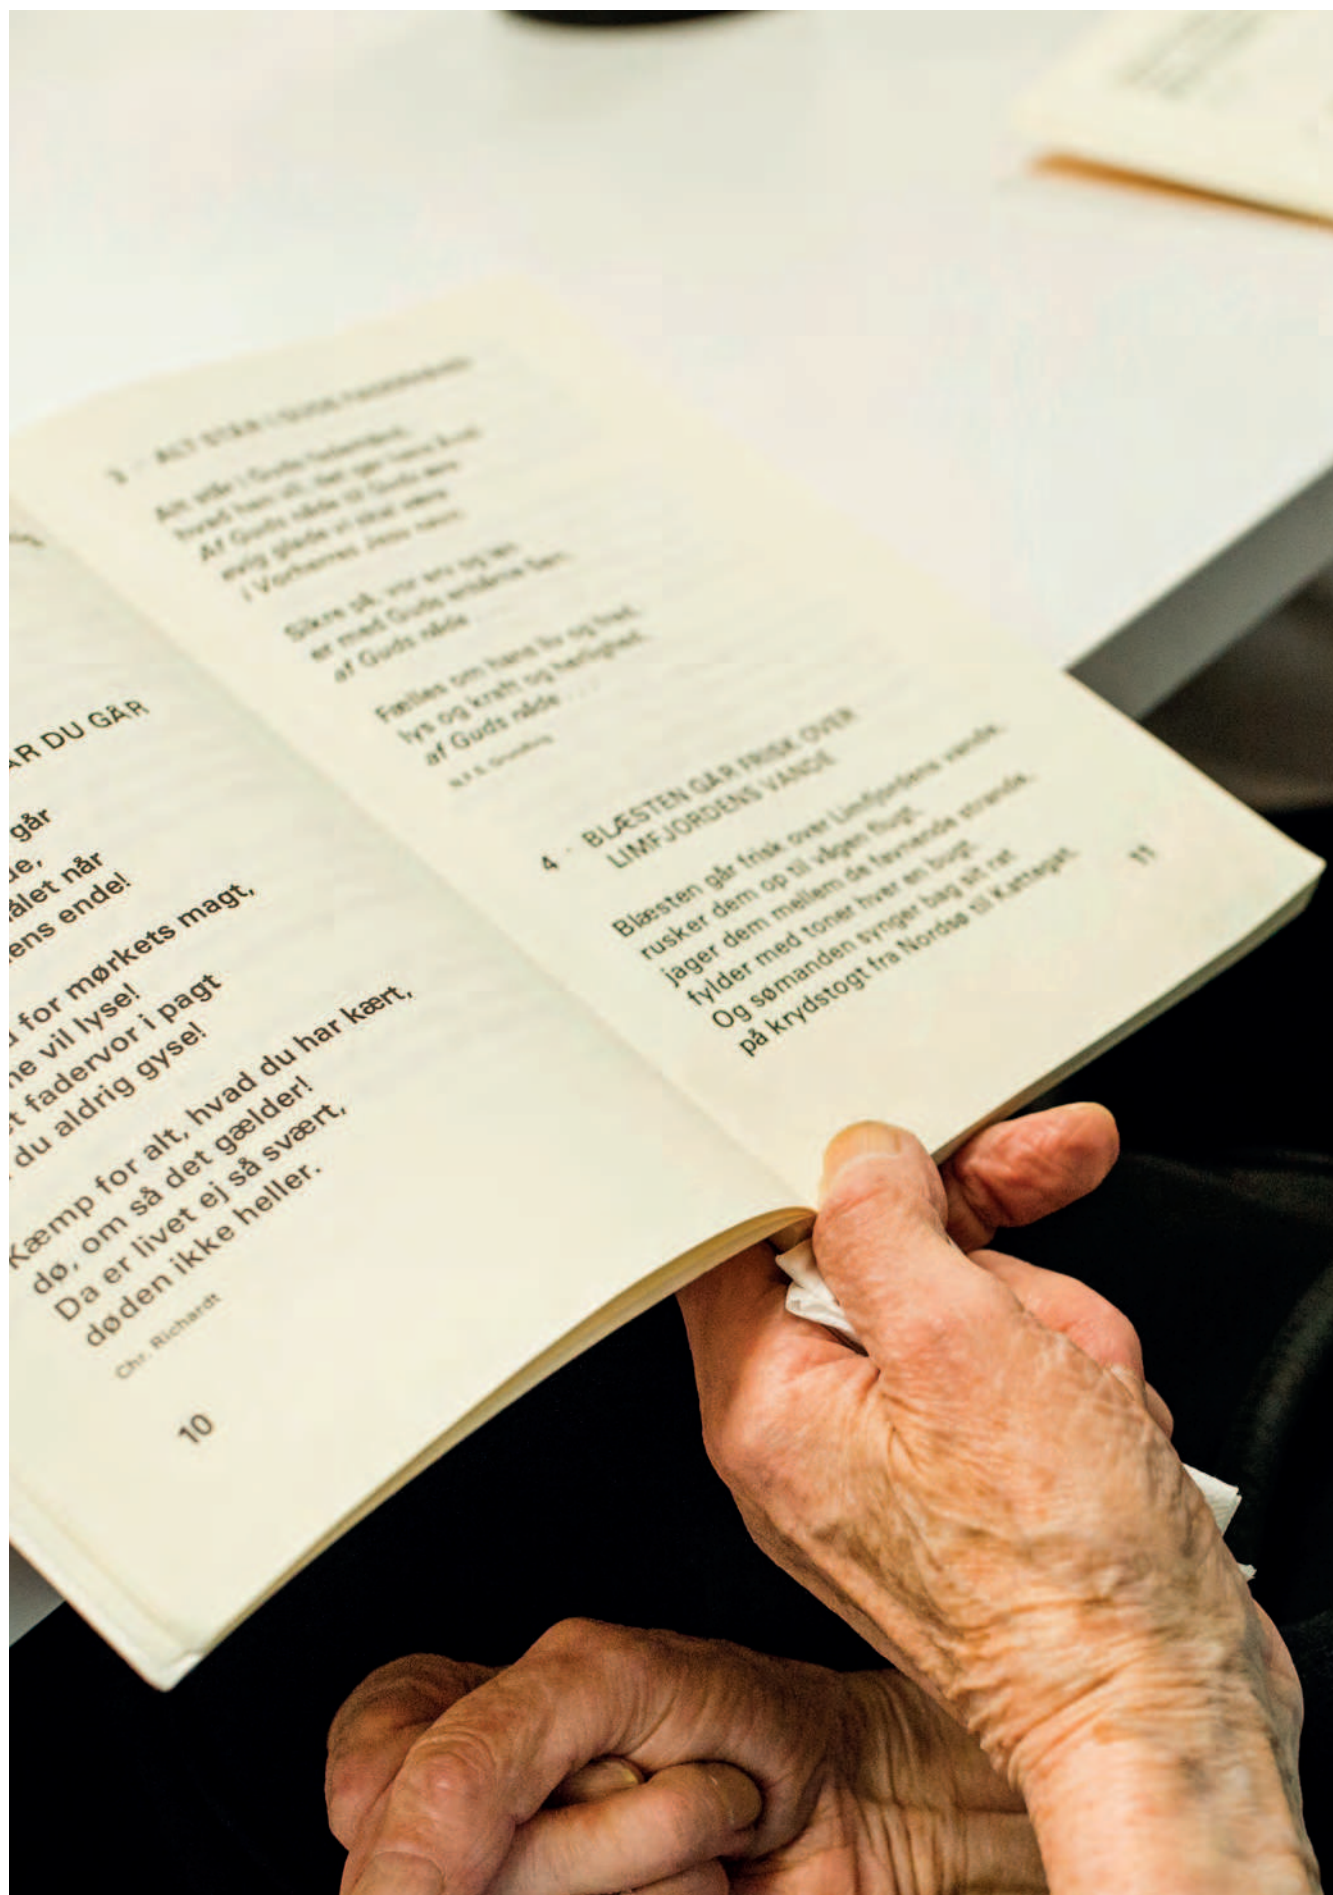 AR DU GÅR
går
de,
ålet når
ens ende!
for mørkets magt,
ne vil lyse!
t fadervor i pagt
du aldrig gyse!
Kæmp for alt, hvad du har kært,
dø, om så det gælder!
Da er livet ej så svært,
døden ikke heller.
Chr. Richardt
10
3 - ALT STÅR I GUDS FADERHÅND
Alt står i Guds faderhånd,
hvad han vil, det gør hans ånd.
Af Guds nåde til Guds ære
evig glade vi skal være
i Vorherres Jesu navn.
Sikre på, vor arv og len
er med Guds enbårne Søn.
af Guds nåde
Fælles om hans liv og fred,
lys og kraft og herlighed.
af Guds nåde . . .
N.F.S. Grundtvig
4 - BLÆSTEN GÅR FRISK OVER
LIMFJORDENS VANDE
Blæsten går frisk over Limfjordens vande,
rusker dem op til vågen flugt,
jager dem mellem de favnende strande,
fylder med toner hver en bugt.
Og sømanden synger bag sit rat
på krydstogt fra Nordsø til Kattegat.
11